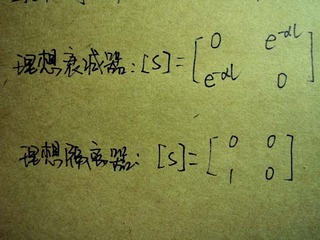 理想衰减器:[S]=[0 e^-αl
e^-αl 0]
理想隔离器:[S]=[0 0
1 0]